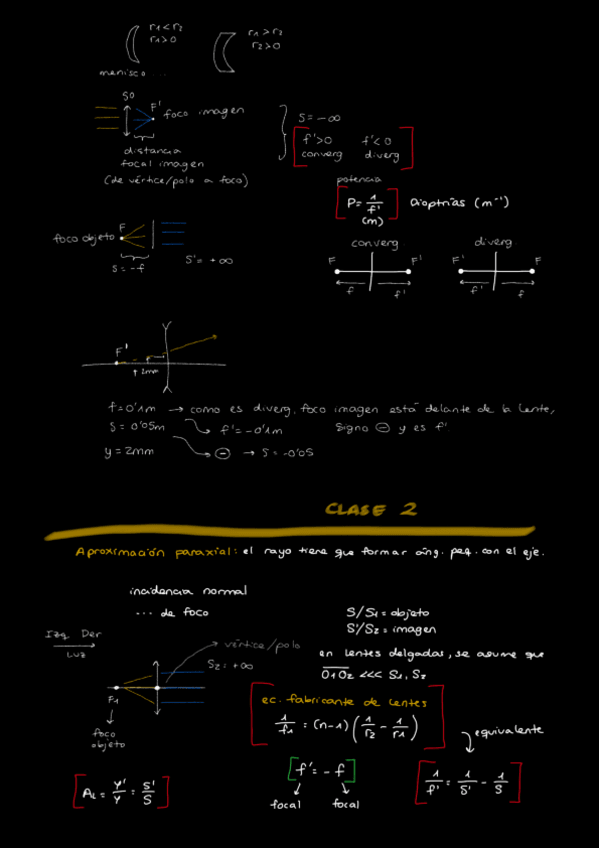 r1 < r2
r1 > 0
r1 > r2
r2 > 0
menisco ...
SO
F' foco imagen
distancia
focal imagen
(de vértice/polo a foco)
S = -∞
f' > 0 f' < 0
converg diverg
potencia
P = 1/f' Dioptrías (m⁻¹)
(m)
F
foco objeto
S = -f
S' = +∞
converg diverg
F F' F' F
f f' f' f
F'
↑ 2mm
f = 0'1m → como es diverg. foco imagen está delante de la lente,
S = 0'05m → f' = -0'1m signo ⊖ y es f'
y = 2mm → ⊖ → S = -0'05
CLASE 2
Aproximación paraxial: el rayo tiene que formar áng. peq. con el eje.
incidencia normal
... de foco
S/S1 = objeto
S'/S2 = imagen
Izq Der
LUZ
vértice/polo
S2 = +∞
en lentes delgadas, se asume que
O1O2 <<< S1, S2
F1
foco
objeto
ec. fabricante de lentes
1/f1 = (n-1) (1/r2 - 1/r1)
equivalente
f' = -f
focal focal
AL = y'/y = S'/S
1/f' = 1/S' - 1/S